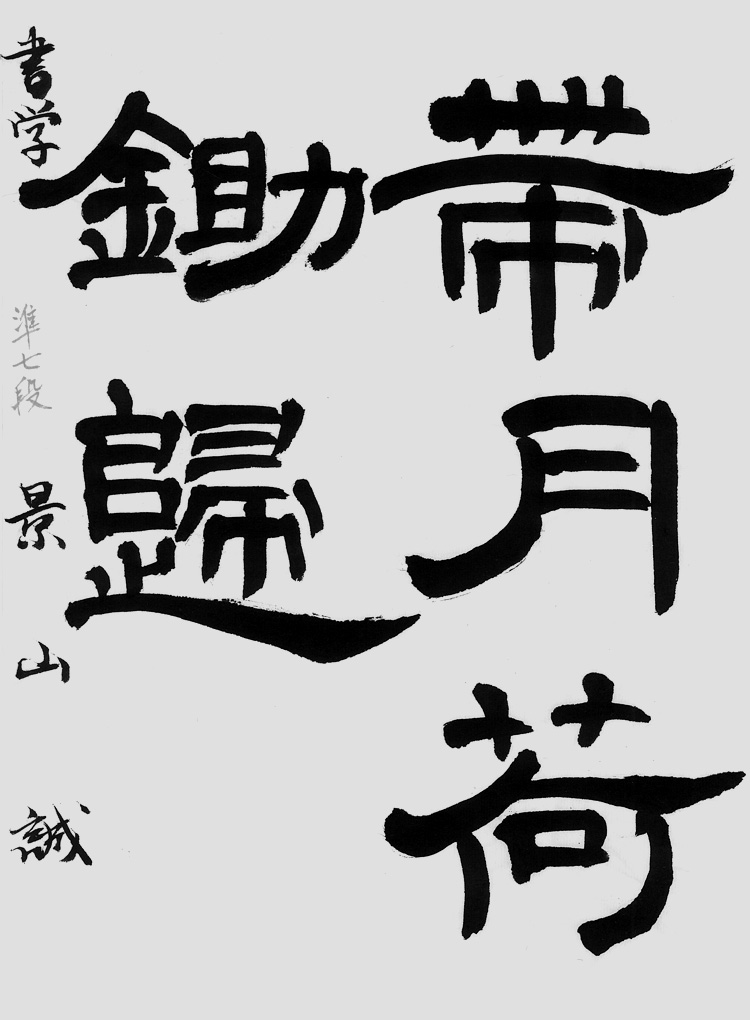 帯月荷
鋤歸
書学 準七段 景山 誠